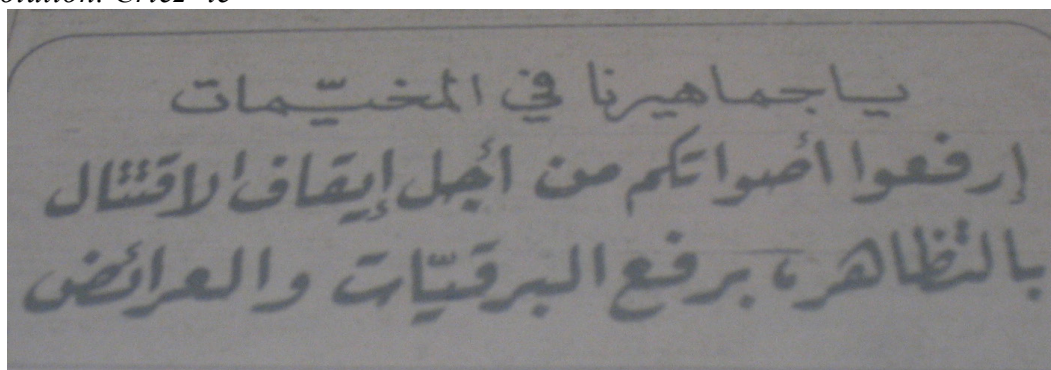 ياجماهيرنا في المخيّمات
إرفعوا أصواتكم من أجل إيقاف الاقتتال
بالتظاهر، برفع البرقيّات والعرائض